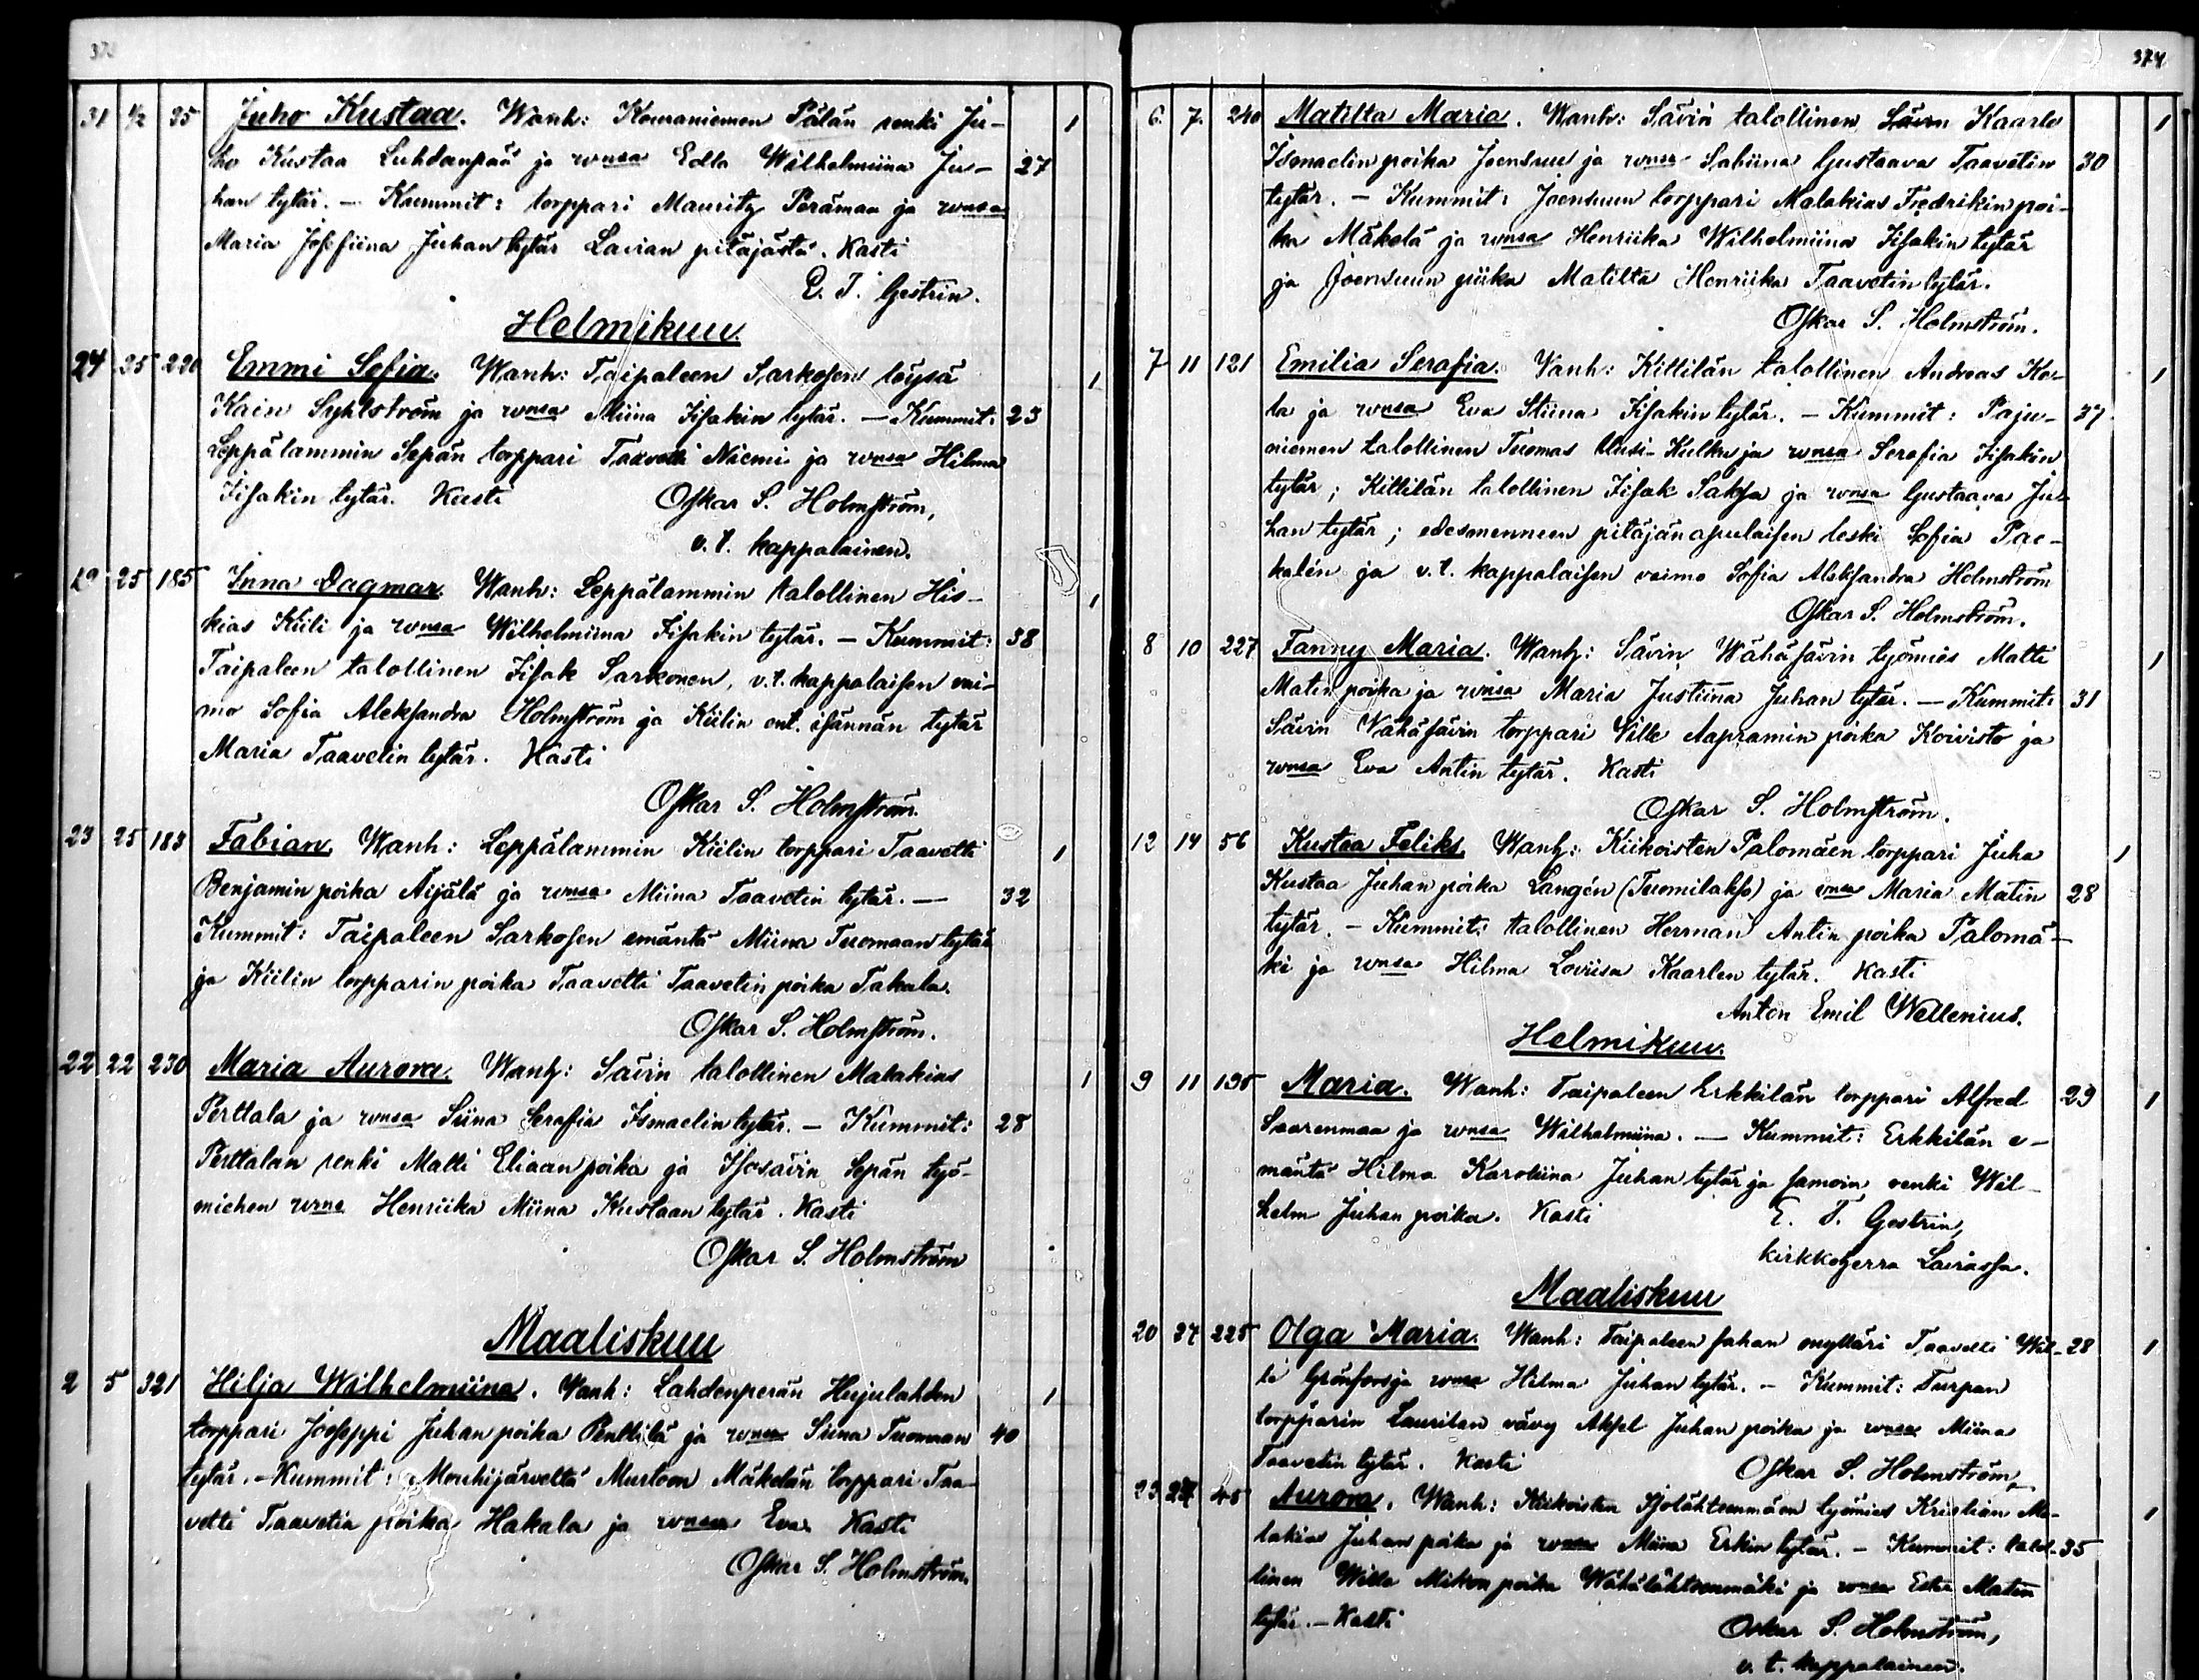 31 1/2 35 Juho Kustaa. Wanh: Kouraniemen Pälän renki Ju- 1
ho Kustaa Luhdanpää ja wmsa Edla Wilhelmiina Ju- 27
han tytär. – Kummit: torppari Mauritz Perämaa ja wmsa
Maria Josefiina Juhan tytär Lavian pitäjästä. Kasti
E. T. Gestrin.
Helmikuu.
24 25 220 Emmi Sofia. Wanh: Taipaleen Sarkosen löysä 1
Kain Syhlström ja wmsa Miina Iisakin tytär. – Kummit: 23
Leppälammin Sepän torppari Taavetti Niemi ja wmsa Hilma
Iisakin tytär. Kasti Oskar S. Holmström,
v.t. kappalainen.
19 25 185 Inna Dagmar. Wanh: Leppälammin talollinen His- 1
kias Kiili ja wmsa Wilhelmiina Iisakin tytär. – Kummit: 38
Taipaleen talollinen Iisak Sarkonen, v.t. kappalaisen vai-
mo Sofia Aleksandra Holmström ja Kiilin ent. isännän tytär
Maria Taavetin tytär. Kasti
Oskar S. Holmström.
23 25 183 Fabian. Wanh: Leppälammin Kiilin torppari Taavetti 1
Benjamin poika Äijälä ja wmsa Miina Taavetin tytär. – 32
Kummit: Taipaleen Sarkosen emäntä Miina Tuomaan tytär
ja Kiilin torpparin poika Taavetti Taavetin poika Takala.
Oskar S. Holmström.
22 22 230 Maria Aurora. Wanh: Sävin talollinen Malakias 1
Perttala ja wmsa Siina Serafia Ismaelin tytär. – Kummit: 28
Perttalan renki Matti Eliaan poika ja Isosävin Sepän työ-
miehen wmo Henriika Miina Kustaan tytär. Kasti
Oskar S. Holmström
Maaliskuu
2 5 321 Hilja Wilhelmiina. Wanh: Lahdenperän Hujulahden 1
torppari Jooseppi Juhan poika Penttilä ja wmsa Siina Tuomaan 40
tytär. – Kummit: Mouhijärveltä Murtoon Mäkelän torppari Taa-
vetti Taavetin poika Hakala ja wmsa Eva. Kasti
Oskar S. Holmström.
374
6. 7. 240 Matilta Maria. Wanh: Sävin talollinen Kaarlo 1
Ismaelin poika Joensuu ja wmsa Sabiina Gustaava Taavetin 30
tytär. – Kummit: Joensuun torppari Malakias Fredrikin poi-
ka Mäkelä ja wmsa Henriika Wilhelmiina Iisakin tytär
ja Joensuun piika Matilta Henriika Taavetin tytär.
Oskar S. Holmström.
7 11 121 Emilia Serafia. Vanh: Kittilän talollinen Andreas Ko- 1
la ja wmsa Eva Stiina Iisakin tytär. – Kummit: Paju- 37
niemen talollinen Tuomas Uusi-Kulku ja wmsa Serafia Iisakin
tytär; Kittilän talollinen Iisak Saksa ja wmsa Gustaava Ju-
han tytär; edesmenneen pitäjänapulaisen leski Sofia Pac-
kalén ja v.t. kappalaisen vaimo Sofia Aleksandra Holmström
Oskar S. Holmström.
8 10 227 Fanny Maria. Wanh: Sävin Wähäsävin työmies Matti 1
Matin poika ja wmsa Maria Justiina Juhan tytär. – Kummit: 31
Sävin Vähäsävin torppari Ville Aapramin poika Koivisto ja
wmsa Eva Antin tytär. Kasti
Oskar S. Holmström.
12 14 56 Kustaa Feliks. Wanh: Kiikoisten Palomäen torppari Juha 1
Kustaa Juhan poika Langén (Tuomilakso) ja vmsa Maria Matin 28
tytär. – Kummit: talollinen Herman Antin poika Palomä-
ki ja wmsa Hilma Loviisa Kaarlen tytär. Kasti
Anton Emil Wellenius.
Helmikuu.
9 11 195 Maria. Wanh: Taipaleen Erkkilän torppari Alfred 29 1
Saarenmaa ja wmsa Wilhelmiina. – Kummit: Erkkilän e-
mäntä Hilma Karoliina Juhan tytär ja samoin renki Wil-
helm Juhan poika. Kasti E. T. Gestrin,
kirkkoherra Laviassa.
Maaliskuu
20 27 225 Olga Maria. Wanh: Taipaleen Sahan mylläri Taavetti Wil- 28 1
le Grönfors ja wmsa Hilma Juhan tytär. – Kummit: Turpan
torpparin Laurilan vävy Aksel Juhan poika ja wmsa Miina
Taavetin tytär. Kasti Oskar S. Holmström,
23 27 45 Aurora. Wanh: Kiikoisten Isolähteenmäen työmies Kristian Ma- 1
lakias Juhan poika ja wmsa Miina Erkin tytär. – Kummit: talol- 35
linen Wille Mikon poika Wähälähteenmäki ja wmsa Ester Matin
tytär. – Kasti Oskar S. Holmström,
v.t. kappalainen.